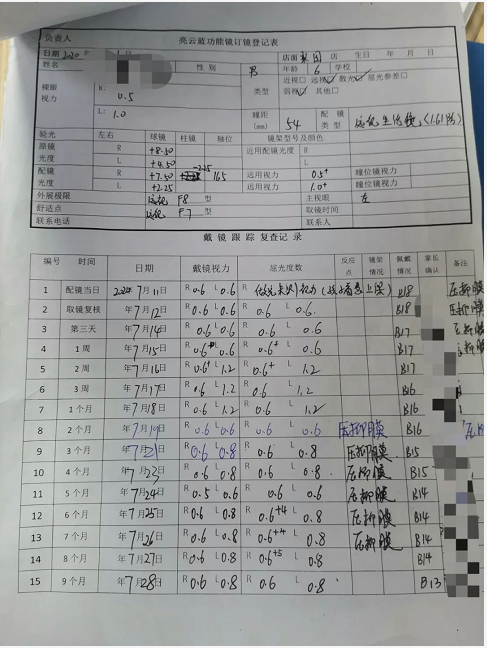 负责人 亮云蓝功能镜订镜登记表
日期 2020年 店面 店 生日 年 月 日
姓名 性别 男 年龄 6 学校
近视□ 远视 散光 屈光参差□
裸眼视力 R: 0.5 类型 弱视 其他□
L: 1.0 瞳距(mm) 54 配镜类型 远视生活镜(1.61)
验光 左右 球镜 柱镜 轴位 镜架型号及颜色
原镜光度 R +8.50 近用配镜光度 R
L +4.50 L
配镜光度 R +7.50 -2.25 165 远用视力 0.5+ 瞳位镜视力
L +2.25 远用视力 1.0+ 瞳位镜视力
外展极限 远视 F8 型 主视眼 左
舒适点 远视 F7 型 取镜时间
联系电话 联系人
戴镜跟踪复查记录
编号 时间 日期 戴镜视力 屈光度数 反应点 镜架情况 佩戴情况 家长确认 备注
1 配镜当日 年7月11日 R0.6 L0.6 R L B18 压抑膜
2 取镜复核 年7月12日 R0.6 L0.6 R0.6 L0.6. B18 压抑膜
3 第三天 年7月14日 R0.6 L0.6 R0.6 L0.6 B17
4 1周 年7月15日 R0.6+ L0.6 R0.6+ L0.6 B17
5 2周 年7月16日 R0.6+ L1.2 R0.6+ L1.2 B17
6 3周 年7月17日 R0.6 L1.2 R0.6 L1.2 B16
7 1个月 年7月18日 R0.6 L1.2 R0.6 L1.2 B16
8 2个月 年7月19日 R0.6 L0.6 R0.6 L0.6 压抑膜 B16
9 3个月 年7月21日 R0.6 L0.8 R0.6 L0.8 压抑膜 B15
10 4个月 年7月22日 R0.6 L0.8 R0.6 L0.8. 压抑膜 B15
11 5个月 年7月24日 R0.5 L0.6 R0.6 L0.6 压抑膜 B14
12 6个月 年7月25日 R0.6 L0.8 R0.6+4 L0.8 压抑膜 B14
13 7个月 年7月26日 R0.6 L0.8 R0.6+4 L0.8 压抑膜 B14
14 8个月 年7月27日 R0.6 L0.8 R0.6+5 L0.8 B14
15 9个月 年7月28日 R0.6 L0.8 R0.6 L0.8 B13